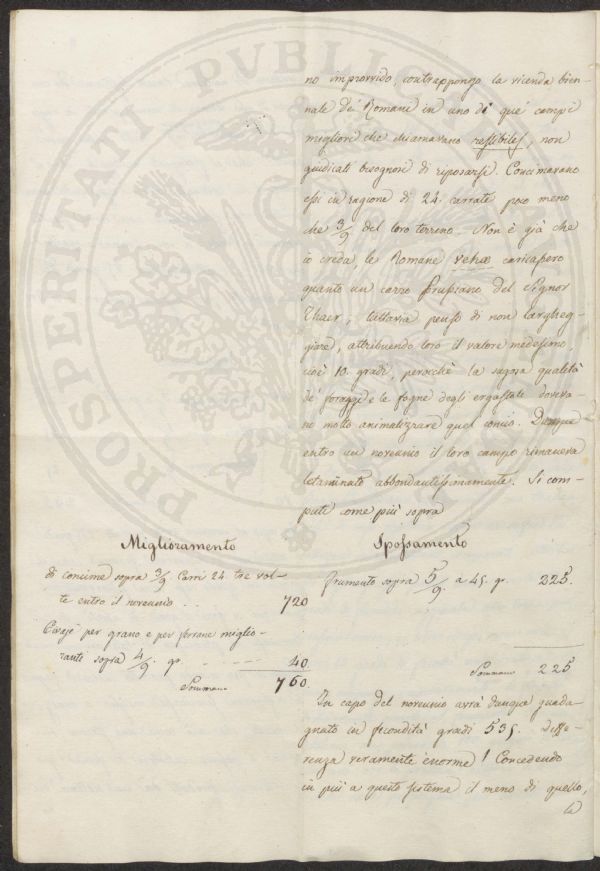 no improvvido, contrappongo la vicenda bien-
nale de' Romani in uno di que' campi
migliori che chiamavano restibiles, non
giudicati bisognosi di riposarsi. Concimavano
essi in ragione di 24. carrate poco meno
che 3/9 del loro terreno. Non è già che
io creda, le Romane vehæ caricassero
quanto un carro Prussiano del Signor
Thaer; tuttavia penso di non largheg-
giare, attribuendo loro il valore medesimo,
cioè 10. gradi, perocchè la sugosa qualità
de' foraggi e le fogne degli ergastoli doveva-
no molto animalizzare quel concio. Dunque
entro un novennio il loro campo rimaneva
letaminato abbondantissimamente. Si com-
puti come più sopra
Miglioramento
di concime sopra 3/9. Carri 24. tre vol-
te entro il novennio . . 720
Civaje per grano e per forrane miglio-
ranti sopra 4/9. gr. 40.
Sommano 760.
Spossamento
Frumento sopra 5/9. a 45. gr. 225.
Sommano 225
In capo del novennio avrà dunque guada-
gnato in fecondità gradi 535. Diffe-
renza veramente enorme! Concedendo
in più a questo sistema il meno di quello,
la
PROSPERITATI PVBLICAE